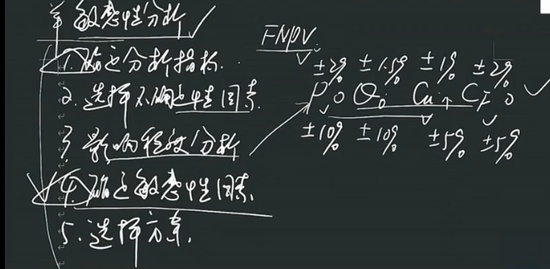 敏感性分析
1. 确定分析指标.
2. 选择不确定性因素.
3. 影响程度分析
4. 确定敏感性因素
5. 选择方案.
FNPV.
±2% ±1.5% ±1% ±2%
P0 Q0 CF0
±10% ±10% ±5% ±5%